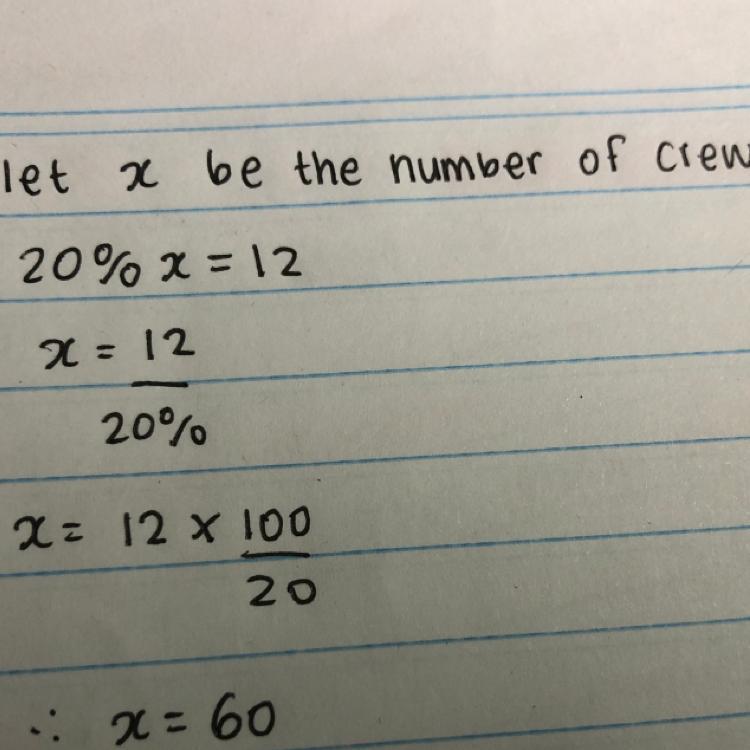 let x be the number of crew
20% x = 12
x = 12
20%
x = 12 × 100
20
∴ x = 60